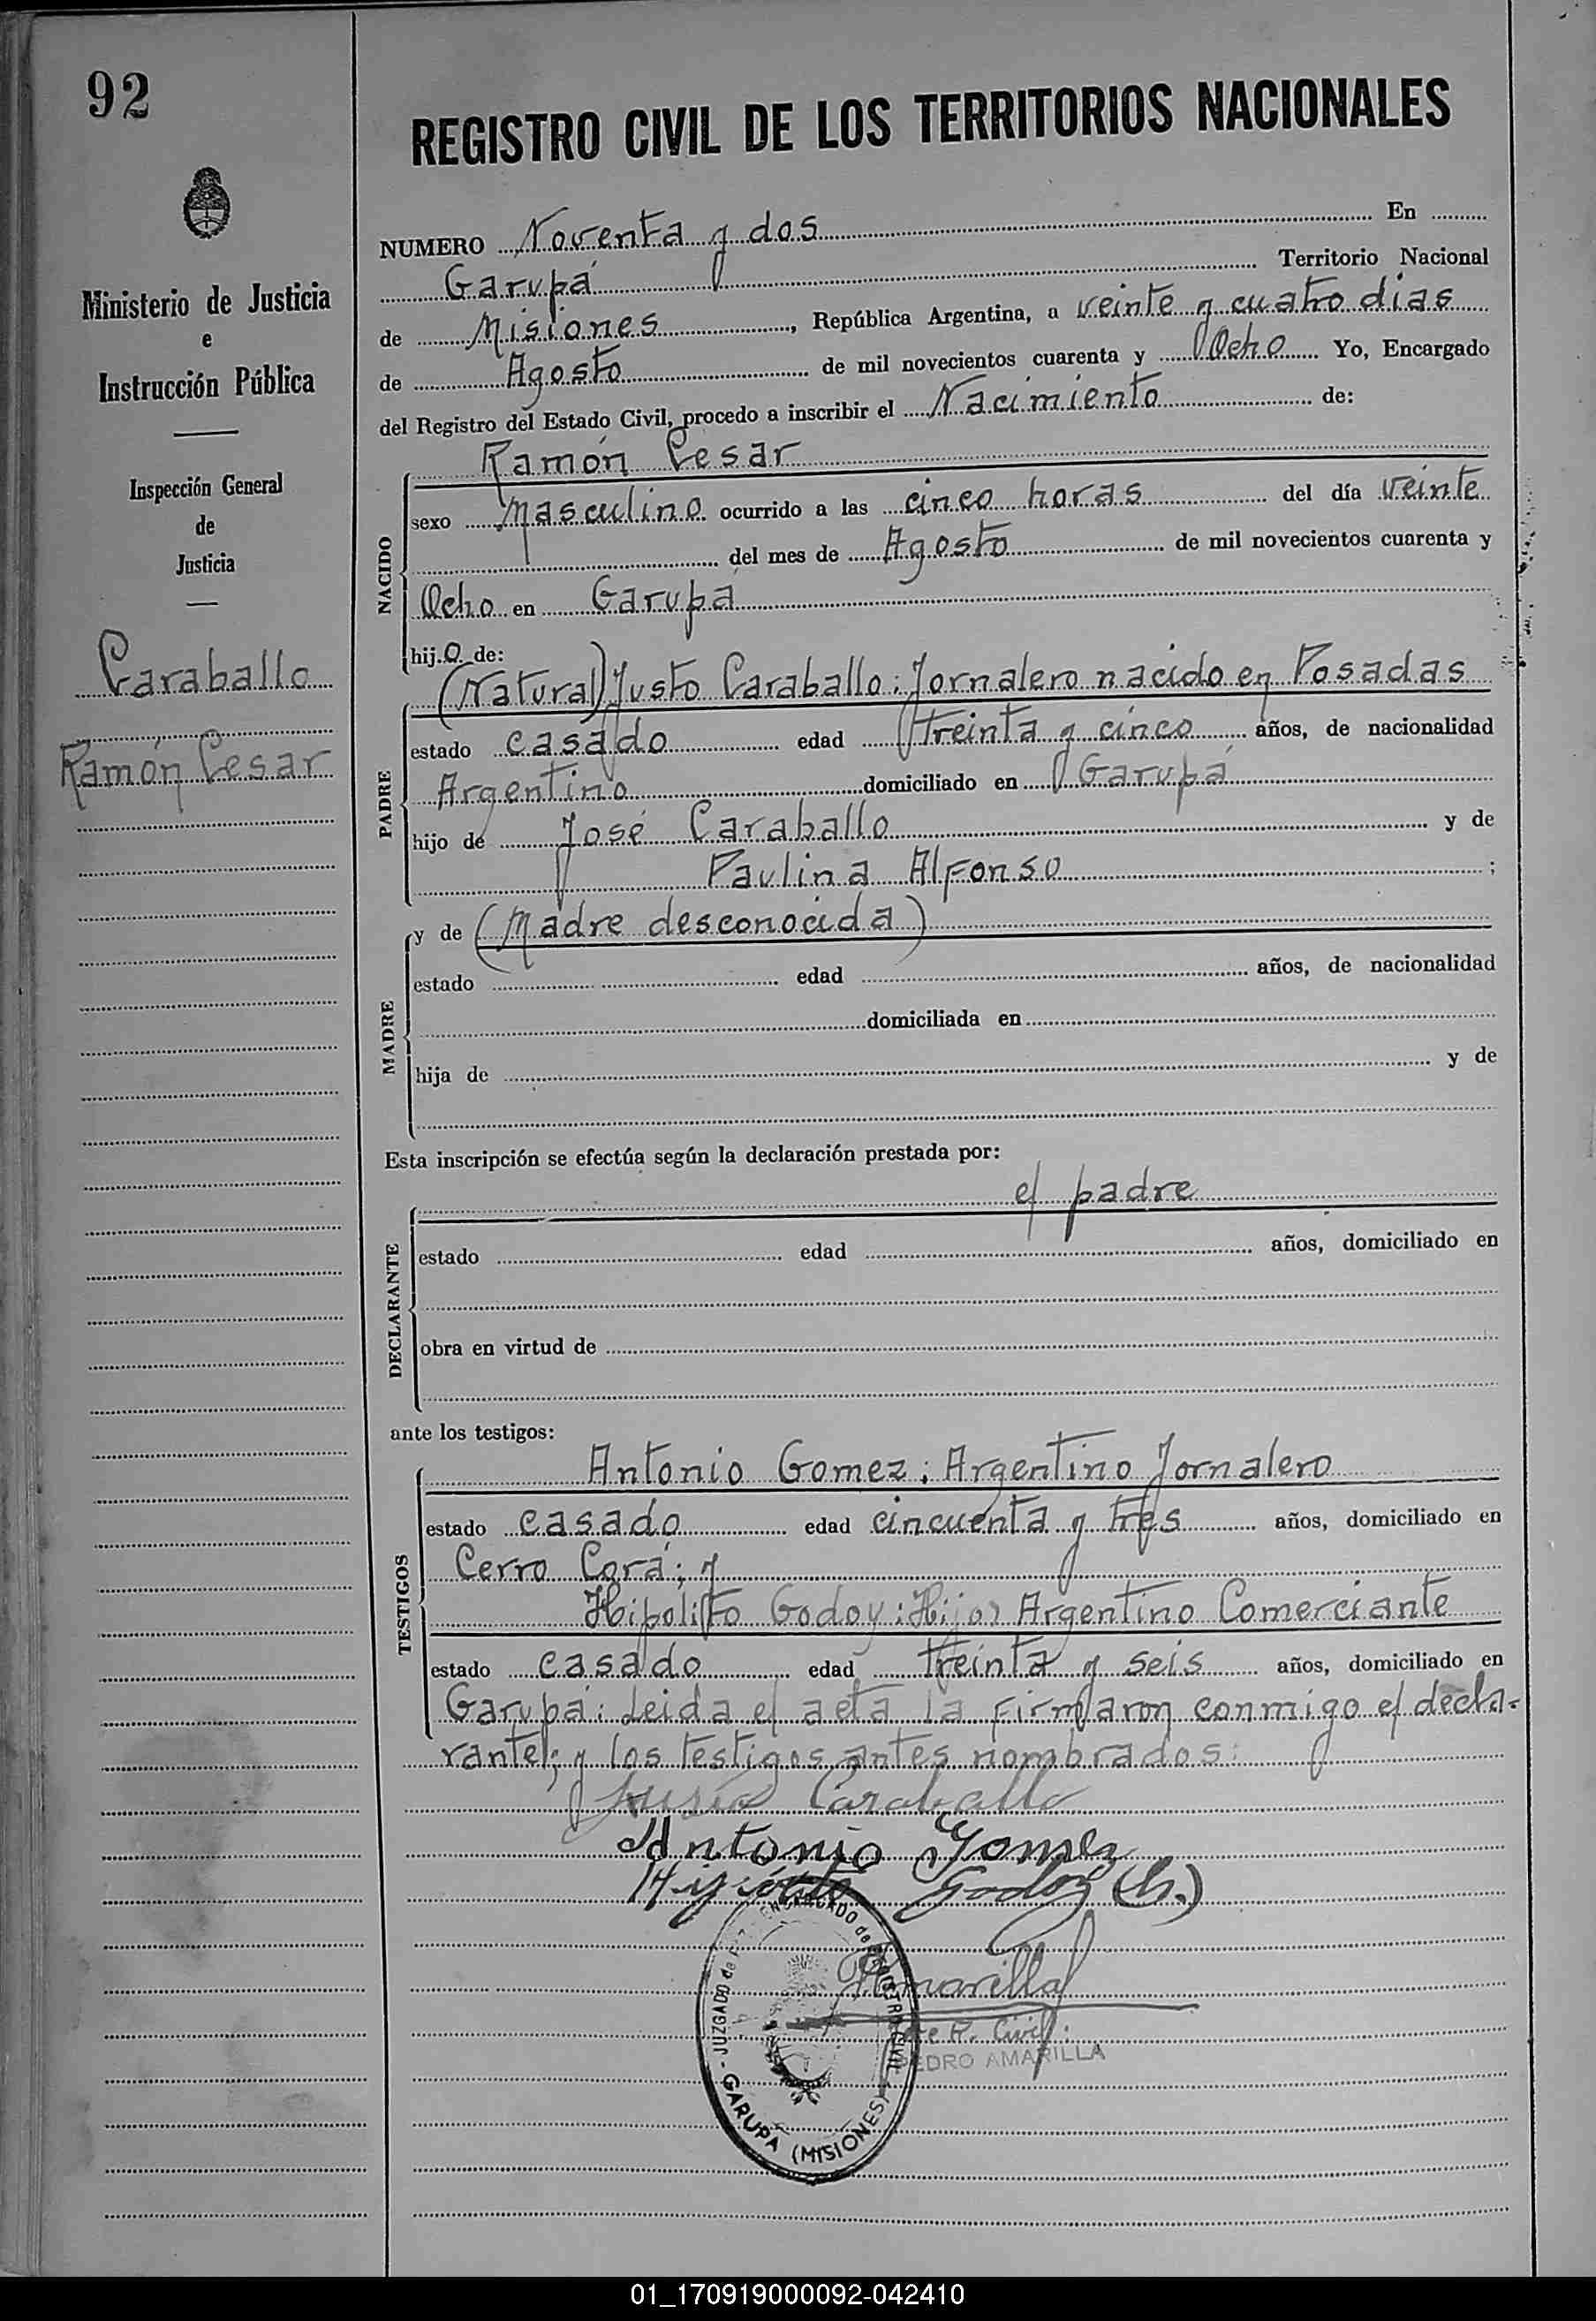 92
Ministerio de Justicia
e
Instrucción Pública
Inspección General
de
Justicia
Caraballo
Ramón Cesar
REGISTRO CIVIL DE LOS TERRITORIOS NACIONALES
NUMERO Noventa y dos En
Garupá Territorio Nacional
de Misiones, República Argentina, a veinte y cuatro dias
de Agosto de mil novecientos cuarenta y Ocho Yo, Encargado
del Registro del Estado Civil, procedo a inscribir el Nacimiento de:
Ramón Cesar
NACIDO
sexo Masculino ocurrido a las cinco horas del día veinte
del mes de Agosto de mil novecientos cuarenta y
Ocho en Garupá
hijo de:
(Natural) Justo Caraballo: Jornalero nacido en Posadas
PADRE
estado casado edad treinta y cinco años, de nacionalidad
Argentino domiciliado en Garupá
hijo de José Caraballo y de
Paulina Alfonso ;
y de (Madre desconocida)
MADRE
estado edad años, de nacionalidad
domiciliada en
hija de y de
Esta inscripción se efectúa según la declaración prestada por:
el padre
DECLARANTE
estado edad años, domiciliado en
obra en virtud de
ante los testigos:
Antonio Gomez: Argentino Jornalero
TESTIGOS
estado casado edad cincuenta y tres años, domiciliado en
Cerro Corá; y
Hipolito Godoy: Hijo) Argentino Comerciante
estado casado edad treinta y seis años, domiciliado en
Garupá: Leida el acta la firmaron conmigo el decla-
rante; y los testigos antes nombrados:
Justo Caraballo
Antonio Gomez
Hipólito Godoy (h.)
Amarilla
R. Civil:
PEDRO AMARILLA
JUZGADO de ENCARGADO de REGISTRO CIVIL
GARUPA (MISIONES)
01_170919000092-042410